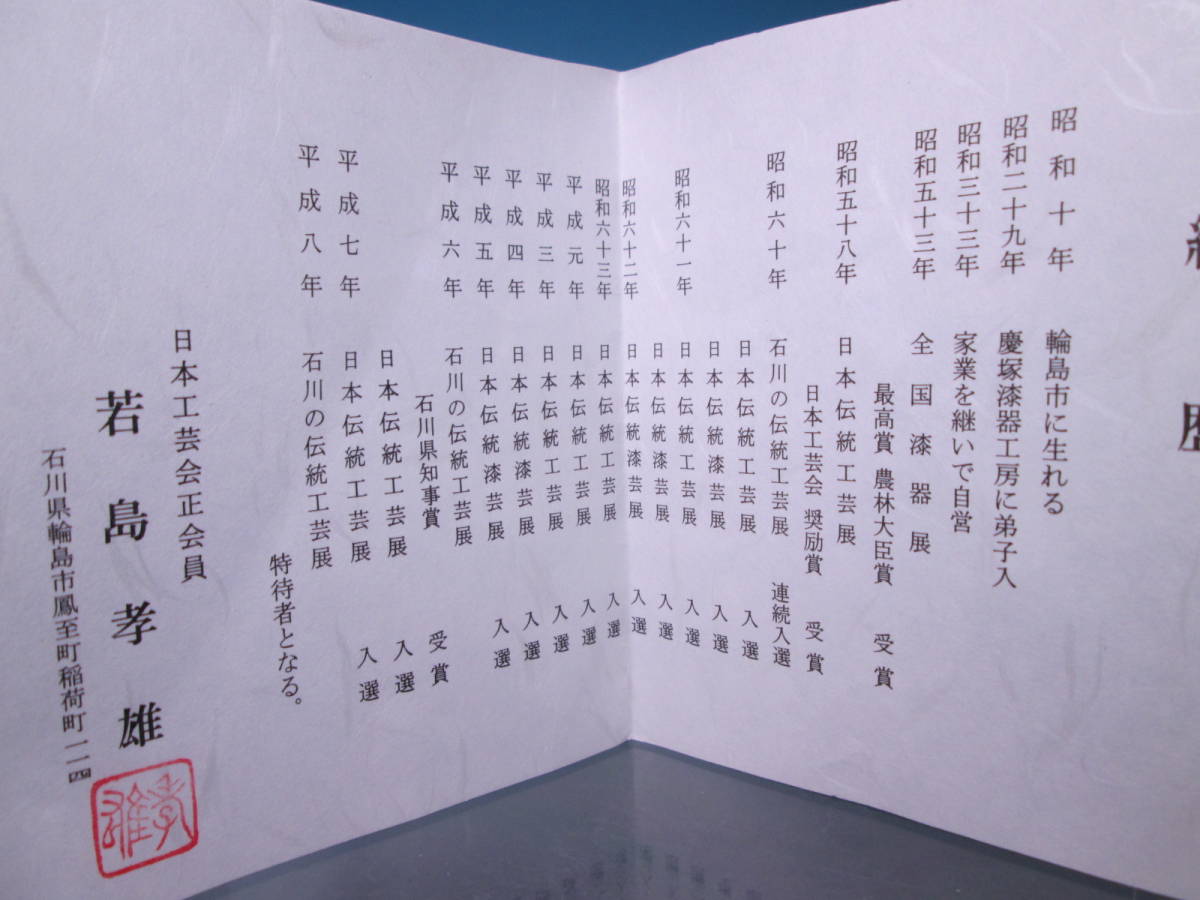 昭和十年 輪島市に生れる
昭和二十九年 慶塚漆器工房に弟子入
昭和三十三年 家業を継いで自営
昭和五十三年 全国漆器展
最高賞 農林大臣賞 受賞
昭和五十八年 日本伝統工芸展
日本工芸会 奨励賞 受賞
昭和六十年 石川の伝統工芸展 連続入選
日本伝統工芸展 入選
日本伝統漆芸展 入選
昭和六十一年 日本伝統工芸展 入選
日本伝統漆芸展 入選
昭和六十二年 日本伝統漆芸展 入選
昭和六十三年 日本伝統工芸展 入選
平成元年 日本伝統工芸展 入選
平成三年 日本伝統工芸展 入選
平成四年 日本伝統漆芸展 入選
平成五年 日本伝統漆芸展 入選
平成六年 石川の伝統工芸展
石川県知事賞 受賞
日本伝統工芸展 入選
平成七年 日本伝統工芸展 入選
平成八年 石川の伝統工芸展
特待者となる。
日本工芸会正会員
若島孝雄
孝雄
石川県輪島市鳳至町稲荷町